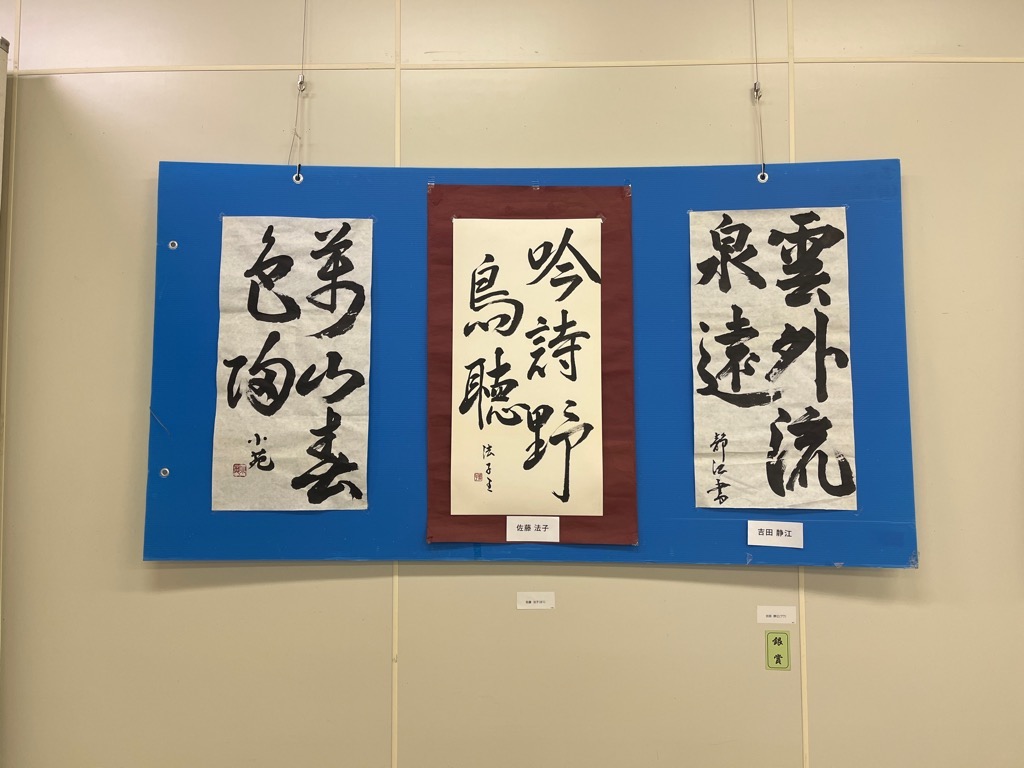 雲外流
泉遠
静江書
吉田 静江
銀賞
吟詩野
鳥聴
法子
佐藤 法子
萬山春
色陶
小苑